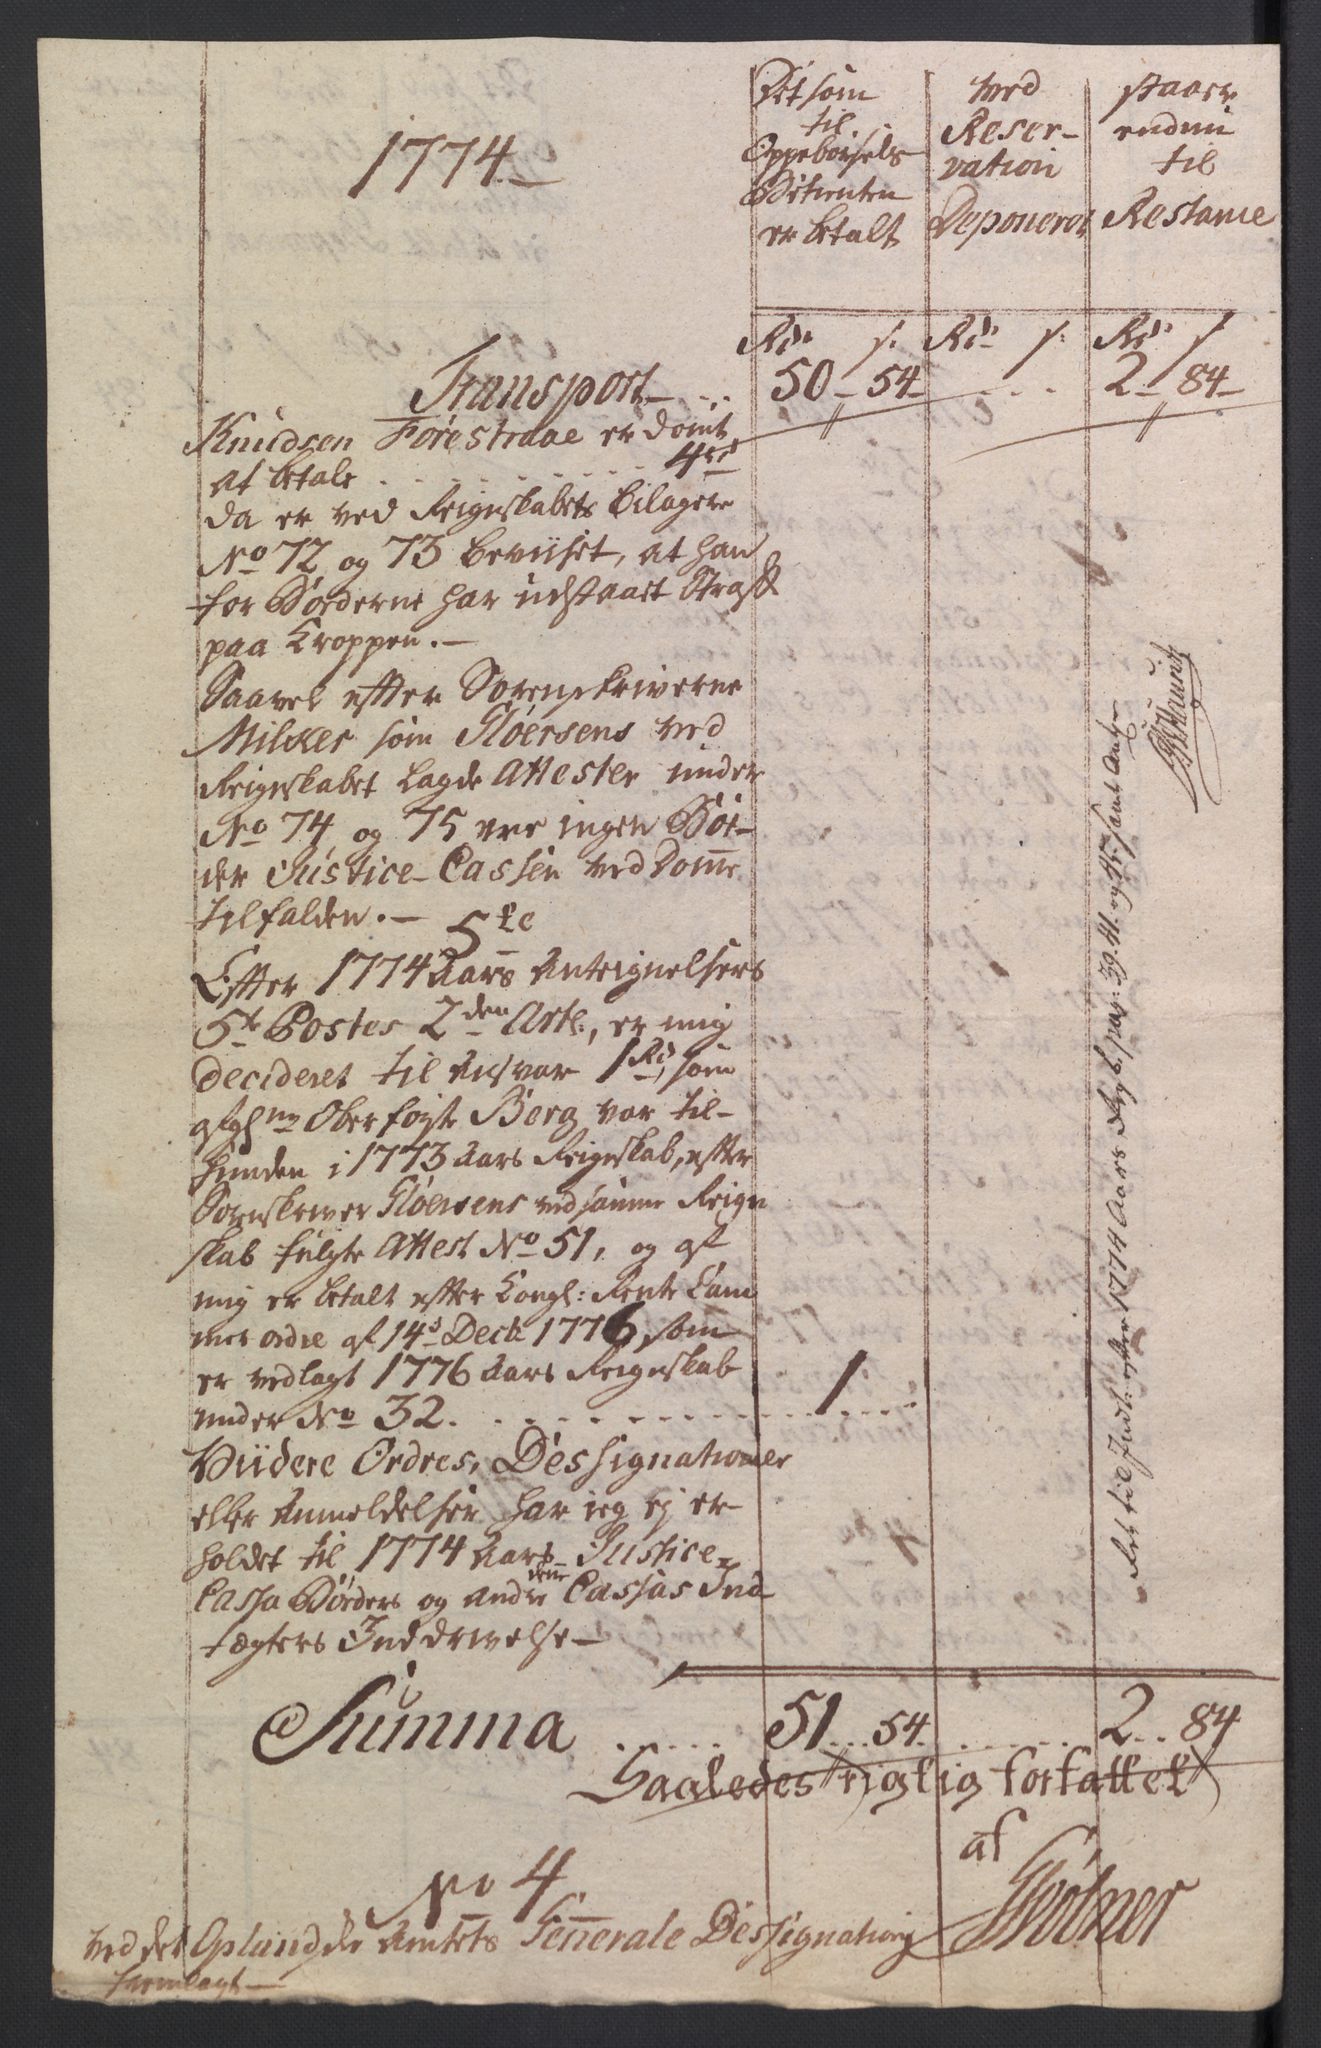 1774
Det som
til
Oppebørsels
Betienten
er betalt
ved
Reser-
vation
Deponeret
staaer
endnu
til
Restance
Rdr s: Rdr s: Rdr s
Transport 50 54 2 84
Knudsen Førestraae er dømt
at betale 4rd
da er ved Reignskabets Bilagere
No 72 og 73 beviiset, at han
for Bøderne har udstaaet Straff
paa Kroppen.
Saavel efter Sorenskriverne
Milser som Gløersens ved
Reignskabet lagde Attester under
No 74 og 75 ere ingen Bøe-
der Justice-Cassen ved Domme
tilfalden.
5te
Efter 1774 Aars Anteignelsers
5te Postes 2den Artl, er mig
decideret til Ansvar 1 Rd, som
afgl Oberføigte Berg var til-
funden i 1773 Aars Reignskab, efter
Sorenskriver Gløersens ved samme Reign
skab fulgte Attest No 51, og af
mig er betalt efter Kongl: Rente Kam
mer ordre af 14d Decb 1776, som
er vedlagt 1776 Aars Reignskab
under No 32. 1
Viidere Ordres, Dessignationer
eller Anmeldelser har jeg ej er-
holdet til 1774 Aars Justice-
Cassa Bøeders og andre denne Cassas Ind
tægters Inddrivelse
Summa 51 54 2 84
Saaledes rigtig forfattet
af
No 4
ved det Oplandske Amtets Generale Dessignation
fremlagt
Det til Indt: efter 1774 Aars Regnsk pag: 39. 41. og 45 samt Antegn